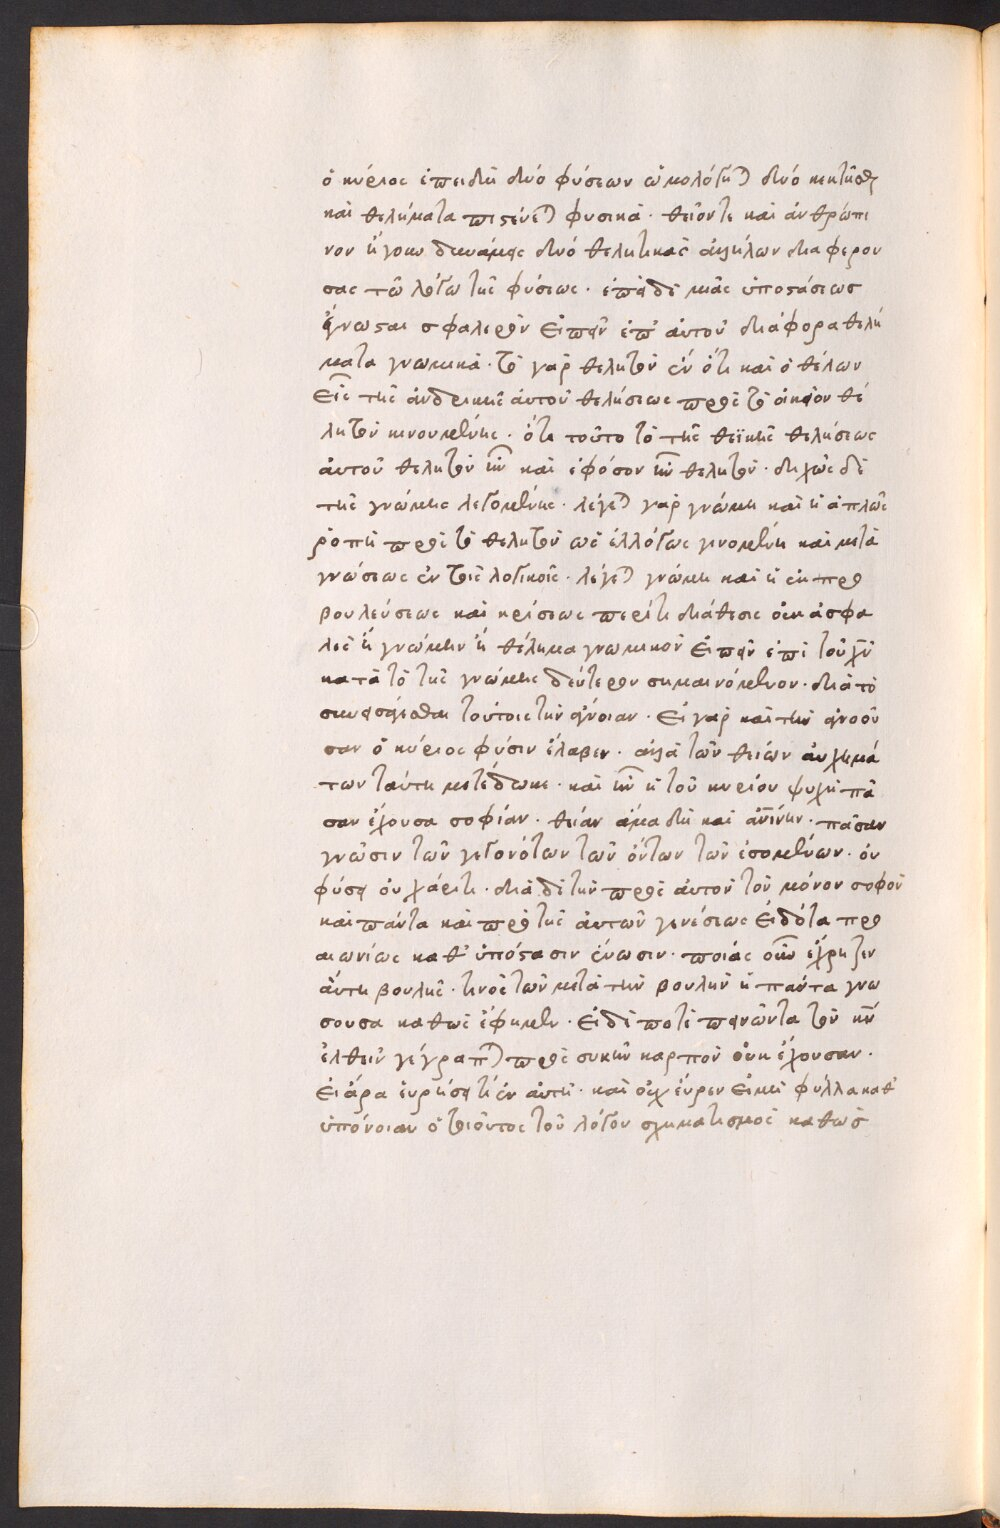 ὁ κύριος ἐπειδὴ δυό φύσεων ὡμολόγηται δυό κεκτῆσθαι
καὶ θελήματα πιστεύεται φυσικὰ · θεῖόν τε καὶ ἀνθρώπι
νον ἤγουν δυνάμεις δυό θελητικὰς ἀλλήλων διαφερου
σας τῶ λόγω τῆς φύσεως · ἐπεὶ δὲ μιᾶς ὑποστάσεως
ἔγνωσται σφαλερὸν εἰπεῖν ἐπ' αὐτοῦ διάφορα θελή
ματα γνωμικὰ · τὸ γὰρ θελητὸν ἓν ὅτι καὶ ὁ θέλων
εἷς τῆς ἀνδρικῆς αὐτοῦ θελήσεως πρὸς τὸ οἰκεῖον θε
λητὸν κινουμένης · ὅτι τοῦτο τὸ τῆς θεϊκῆς θελήσεως
αὐτοῦ θελητὸν ἦν καὶ ἐφόσον ἦν θελητὸν · διχῶς δὲ
τῆς γνώμης λεγομένης · λέγεται γὰρ γνώμη καὶ ἡ ἁπλῶς
ῥοπὴ πρὸς τὸ θελητὸν ὡς ἐλλόγως γινομένη καὶ μετὰ
γνώσεως ἐν τοῖς λογικοῖς · λέγεται γνώμη καὶ ἡ ἐκ προ
βουλεύσεως καὶ κρίσεως περί τι διάθεσις οὐκ ἀσφα
λὲς ἢ γνώμην ἢ θέλημα γνωμικὸν εἰπεῖν ἐπὶ τοῦ χῦ
κατὰ τὸ τῆς γνώμης δεύτερον σημαινόμενον · διὰ τὸ
συνεισάγεσθαι τούτοις τὴν ἄγνοιαν · εἰ γὰρ καὶ τὴν ἀγνοοῦ
σαν ὁ κύριος φύσιν ἔλαβεν · ἀλλὰ τῶν θείων αὐχημά
των ταύτη μετέδωκε · καὶ ἦν ἡ τοῦ κυρίου ψυχὴ πᾶ
σαν ἔχουσα σοφίαν · θείαν ἅμα δὴ καὶ ἀνίνην · πᾶσαν
γνῶσιν τῶν γεγονότων τῶν ὄντων τῶν ἐσομένων · οὐ
φύσει οὐ χάριτι · διὰ δὲ τὴν πρὸς αὐτὸν τὸν μόνον σοφὸν
καὶ πάντα καὶ πρὸ τῆς αὐτῶν γενέσεως εἰδότα προ
αιωνίως καθ' ὑπόστασιν ἕνωσιν · ποίας οὖν ἔχρηζεν
αὕτη βουλῆς · τινὸς τῶν μετὰ τὴν βουλὴν ἡ πάντα γνω
σουσα καθὼς ἔφημεν · εἰ δὲ ποτὲ πεινῶντα τὸν κν
ἐλθεῖν γέγραπται πρὸς συκῆν καρπὸν οὐκ ἔχουσαν ·
εἰ ἄρα εὑρήσει τί ἐν αὐτῆ · καὶ οὐχ εὗρεν εἰμὴ φύλλα καθ'
ὑπόνοιαν ὁ τοιοῦτος τοῦ λόγου σχηματισμὸς καθὼς